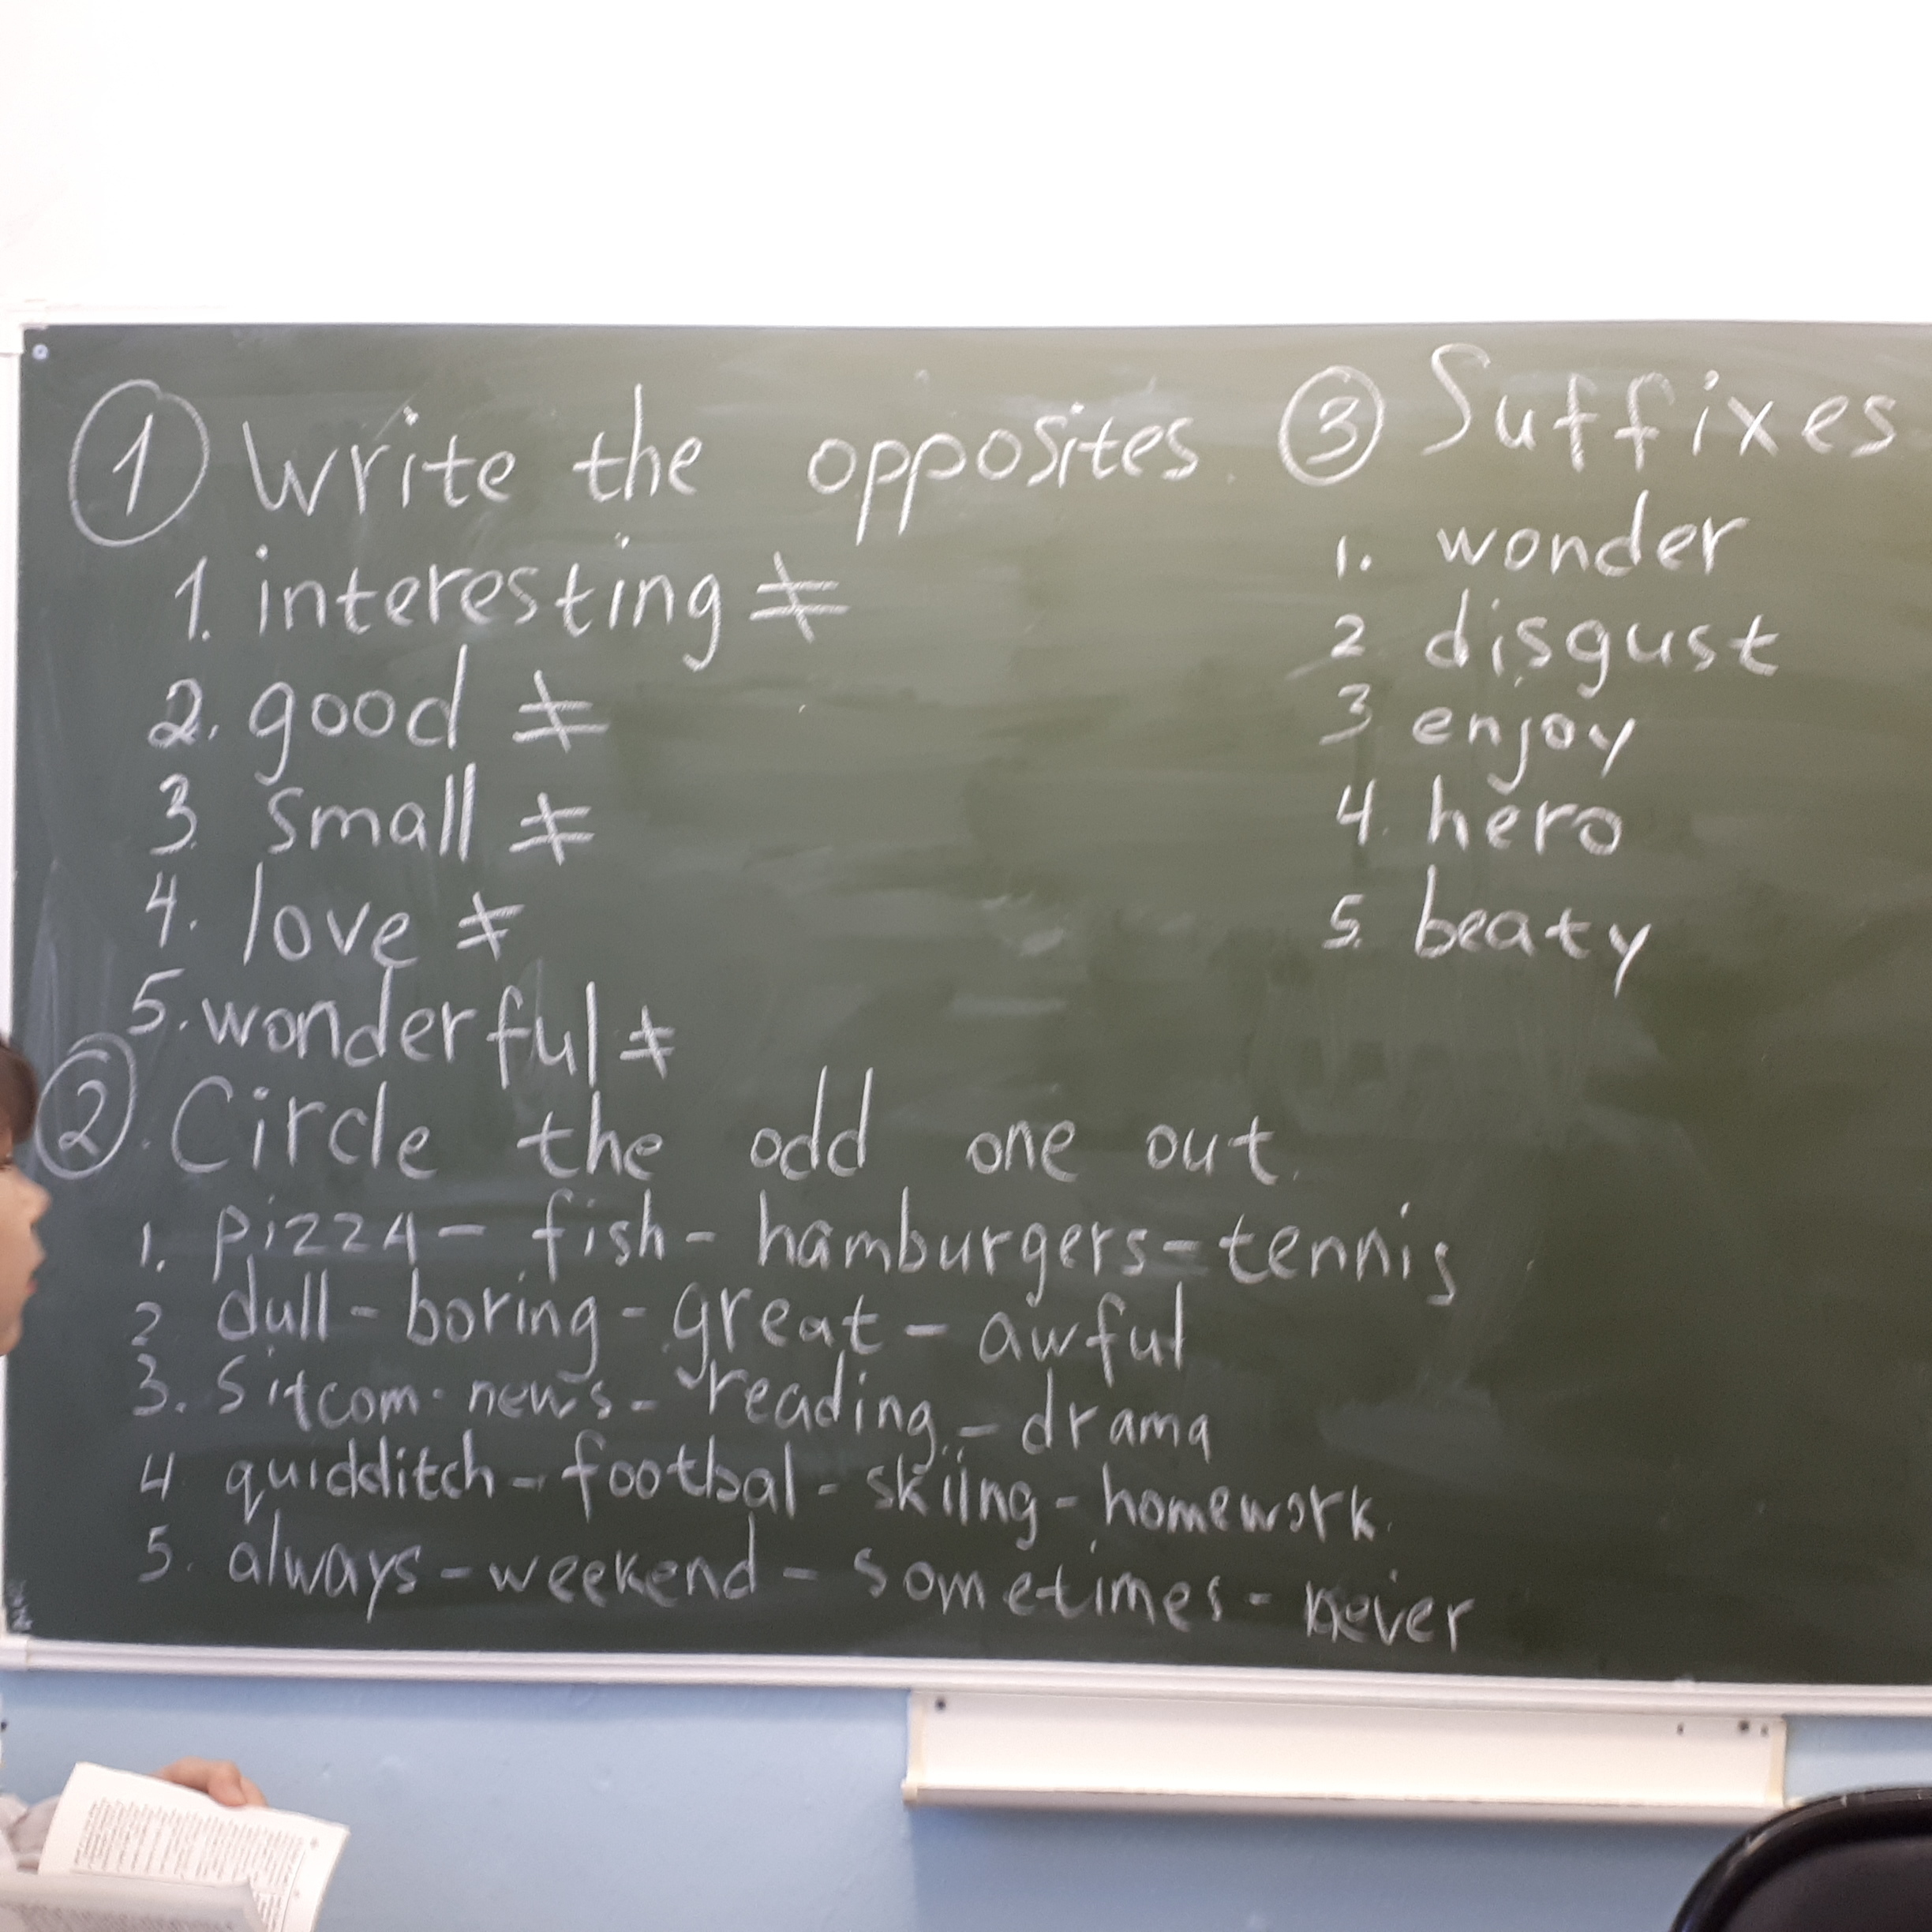 ① Write the opposites.
1. interesting ≠
2. good ≠
3. small ≠
4. love ≠
5. wonderful ≠
②. Circle the odd one out.
1. pizza - fish - hamburgers - tennis
2 dull - boring - great - awful
3. Sitcom - news - reading - drama
4 quidditch - footbal - skiing - homework.
5. always - weekend - sometimes - never
③ Suffixes
1. wonder
2 disgust
3 enjoy
4. hero
5. beaty